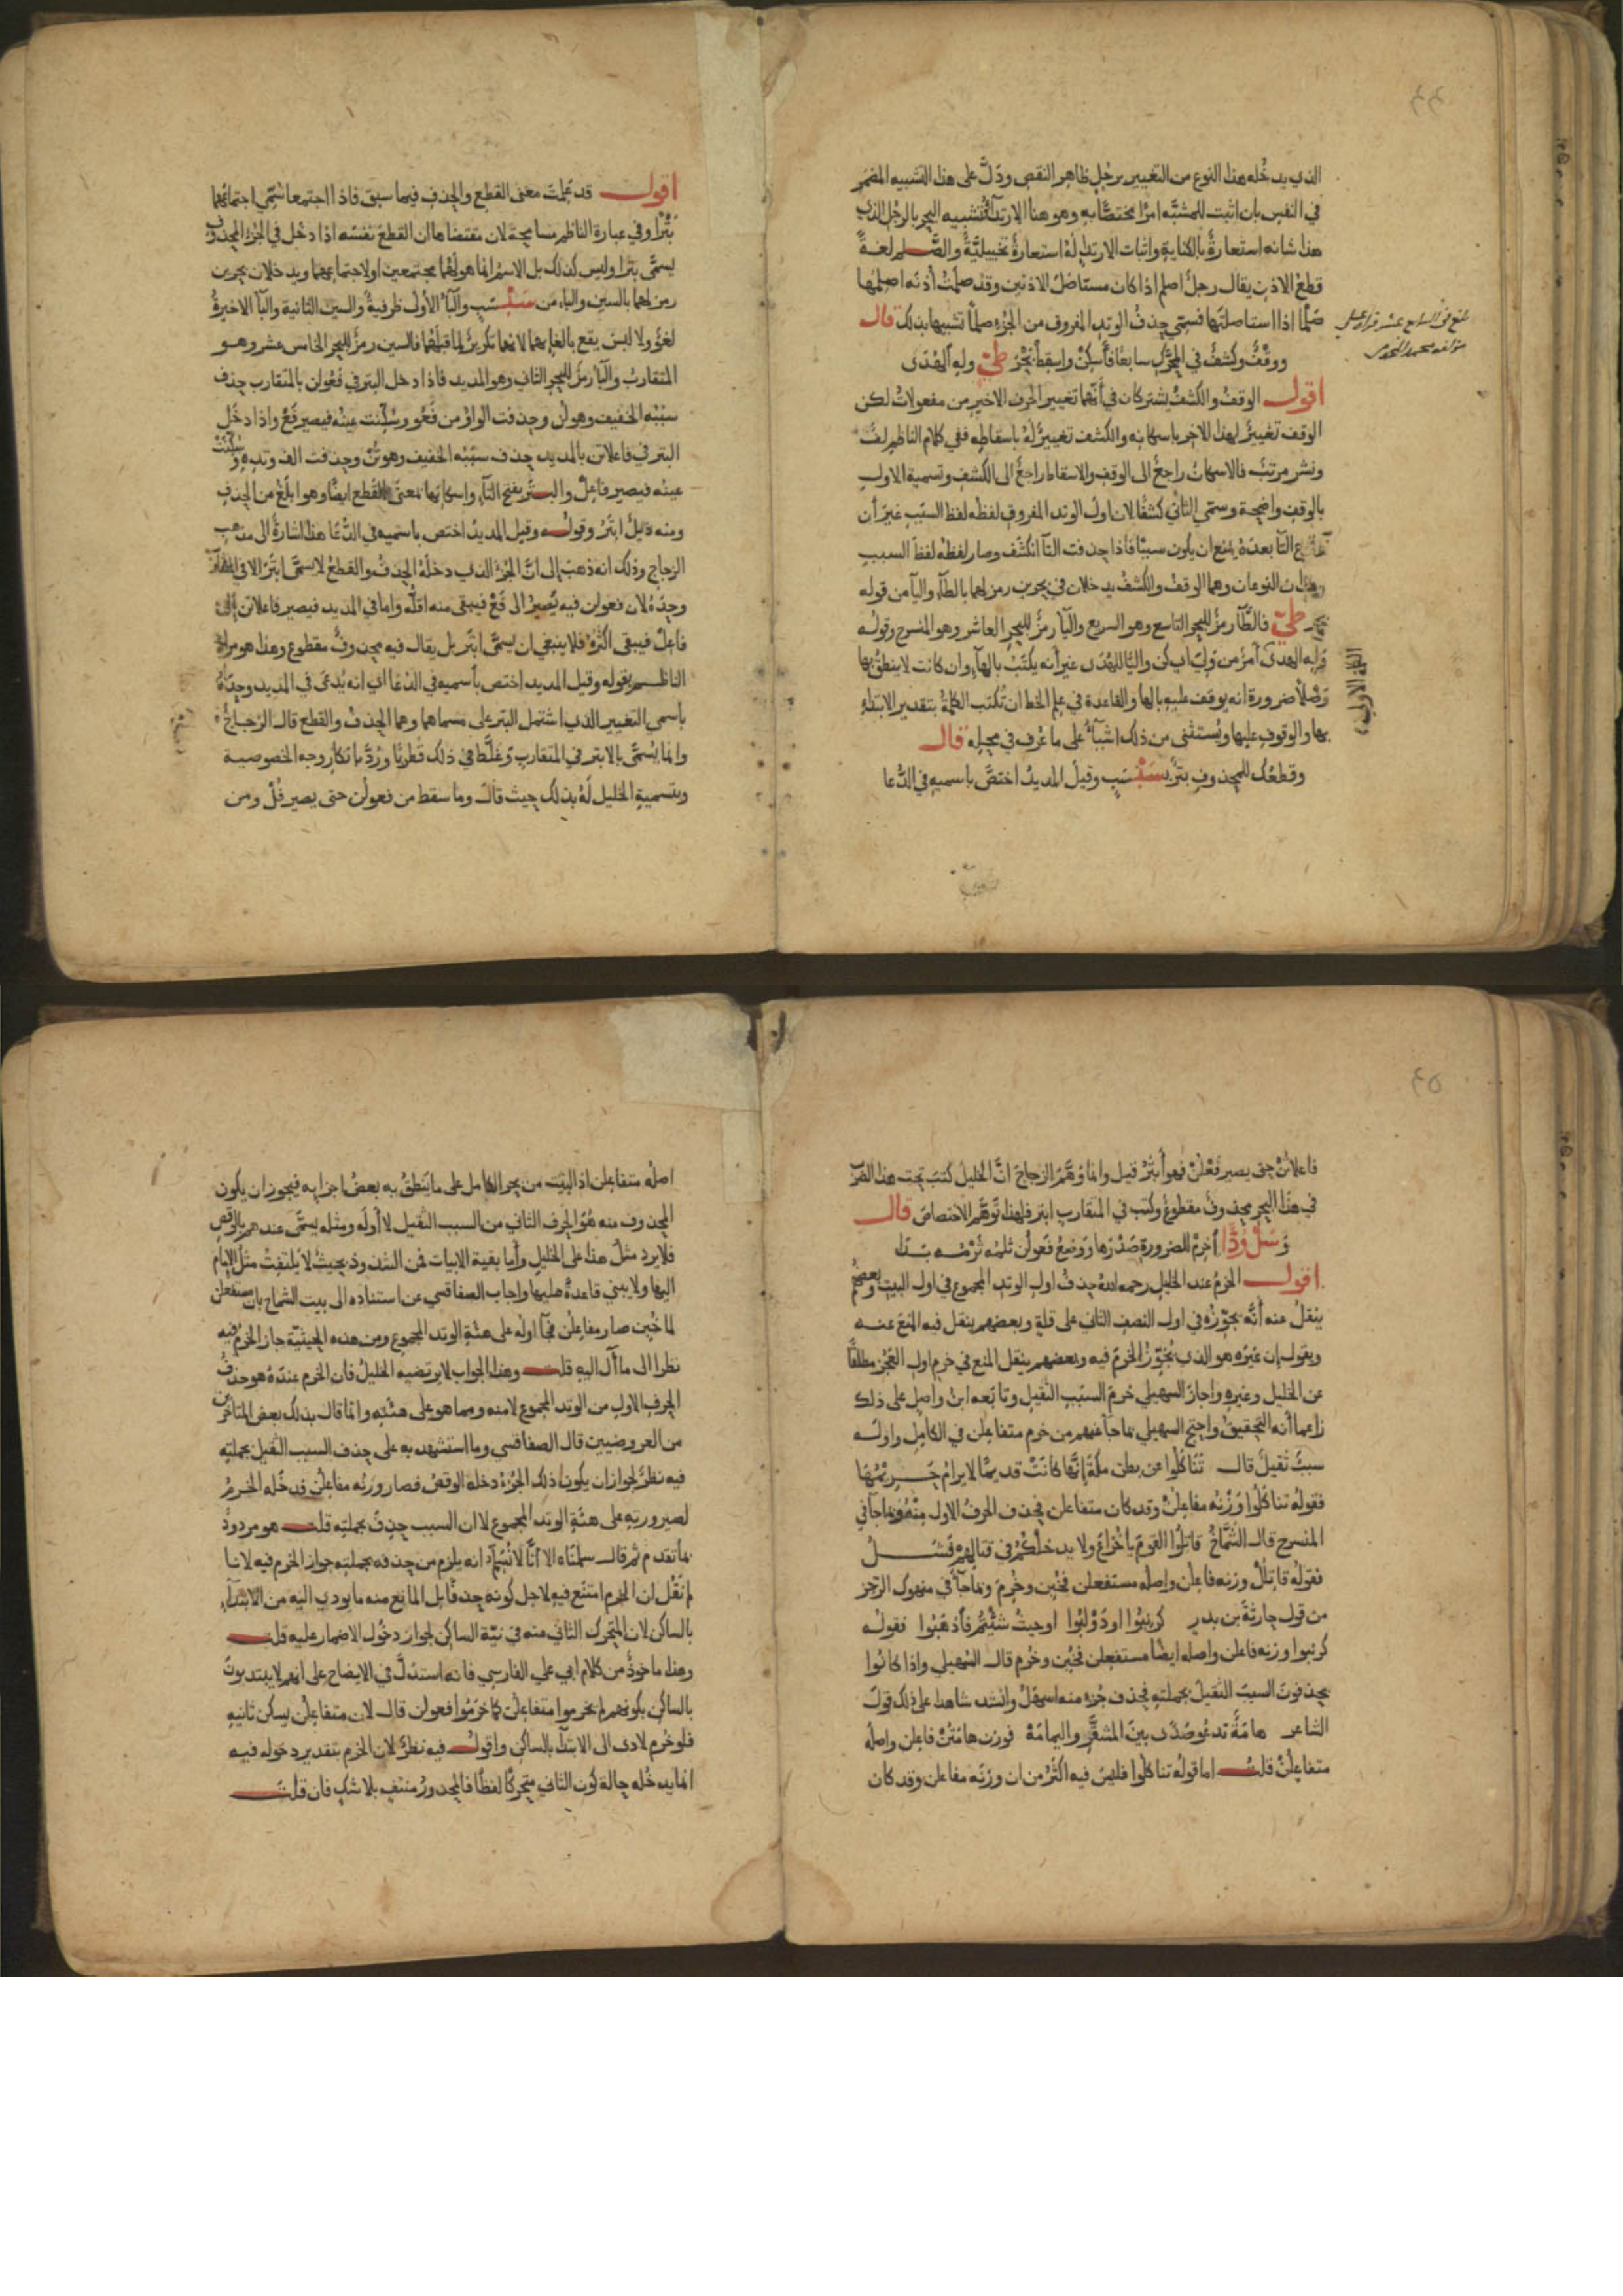 ٤٤
الذي يدخله هذا النوع من التغيير برجل ظاهر النقص ودلَّ على هذا التشبيه المضمر
في النفس بان اثبت للمشبّه امرًا مختصًّا به وهو هنا الارتداء فتشبيه البحر بالرجل الذي
هذا شانه استعارةٌ بالكناية واثبات الارتداء لَهُ استعارةٌ تخييليّةٌ والصَّلم لغةً
قطعُ الاذن يقال رجلٌ اصلم اذا كان مستاصَل الاذنين وقد صلمْتُ أذنَه اصلمُها
صَلْمًا اذا استاصلتَها فسمّي حذفُ الوتدِ المفروق من الجُزءِ صلمًا تشبيها بذلك قال
ووقْفٌ وكشفٌ في المحرَّك سابعًا فأَسكنْ واسقط بَحْرَ طيّ ولِهِ الهُدَى
اقول الوقفُ والكشفُ يشتركان في أنّهما تغيير الحرف الاخير من مفعولاتُ لكن
الوقف تغييرٌ لهذا الاخر باسكانه والكشف تغييرٌ لهُ باسقاطه ففي كلام الناظم لفٌّ
ونشر مرتبٌ فالاسكانُ راجعٌ الى الوقف والاسقاط راجعٌ الى الكشف وتسمية الاول
بالوقف واضحة وسمّي الثاني كشفًا لان اولَ الوتد المفروق لفظُه لفظ السبب غيرَ أن
التآ بعدَهُ يمنع ان يكون سببًا فاذا حذفت التآ انكشَف وصار لفظهُ لفظ السبب
وهذان النوعان وهما الوقف والكشفُ يدخلان في بحرين رمز لهما بالطآء واليآ من قوله
بحر طيّ فالطّآ رمزٌ للبحر التاسع وهو السريع واليآ رمزٌ للبحر العاشر وهو المنسرح وقولُه
وَلِهِ الهدى أمرٌ من وَلِيَ اي كُن واليًا للهُدَى غيرَ أنه يكتَبُ بالهآء وان كانت لا ينطقُ بها
وَصْلًا ضرورة انه يوقف عليه بالها والقاعدة في علم الخط ان تُكتب الكلمةُ بتقدير الابتداء
بها والوقوف عليها ويُستثنى من ذلك اشيآءُ على ما عُرف في محله قال
وقطعُك للمحذوف بترٌ بسَبْسَبٍ وقيل المديدُ اختصَّ باسميه في الدُّعا
اقول قد عَلِمتَ معنى القطع والحذف فيما سبق فاذا اجتمعا سُمّي اجتماعُهما
بَتْرًا وفي عبارة الناظم مسامحة لان مقتضاها ان القطعَ نفسَه اذا دخل في الجزء المحذوف
يسمَّى بترًا وليس كذلك بل الاسمُ انما هو لهُما مجتمعين او لاجتماعِهما ويدخلان بحرين
رمز لهما بالسين والباء من سَبْسَبٍ والبآءُ الأولى ظرفيةٌ والسين الثانية والبآ الاخيرةُ
لغوٌ ولا لبسَ يقع بالغائهما لانهما تكريرٌ لما قبلَهُما فالسين رمزٌ للبحر الخامس عشر وهو
المتقاربُ والبآ رمز للبحر الثاني وهو المديد فاذا دخل البتر في فعولن بالمتقارب حذف
سببُه الخفيف وهو لن وحذفت الواوُ من فَعُو وسُكِّنت عينُه فيصير فَعْ واذا دخَل
البتر في فاعلاتن بالمديد حذف سببُه الخفيف وهو تُنْ وحذفت الف وتدِهِ وسُكِّنَتْ
عينُه فيصير فاعِلْ والبَتْر بفتح التآء واسكانِها بمعنَى القطع ايضًا وهو ابلغُ من الحذف
ومنه ذيلٌ ابْتَرُ وقولُه وقيل المديدُ اختص باسميه في الدُّعَا هذا اشارةٌ الى مذهب
الزجاج وذلك انه ذهبَ إلى انَّ الجُزءَ الذي دخلَهُ الحذفُ والقطعُ لا يسمَّى ابتَرَ الا في المتقارب
وحدَهُ لان فعولن فيه يَصِيرُ الى فَعْ فيبقى منه اقلُّه واما في المديد فيصير فاعلاتن إلى
فاعلْ فيبقى اكثرُهُ فلا ينبغي ان يسمَّى ابْتَر بل يقال فيه محذوفٌ مقطوعٌ وهذا هو مراد
الناظم بقوله وقيل المديد اختص باسميه في الدُعَا اي انه يُدعَى في المديد وحدَهُ
باسمي التغيير الذي اشتمل البتر على مسماهما وهما الحذفُ والقطع قال الزجاجُ
وانما يُسَمَّى بالابتر في المتقاربِ وغلَّطه في ذلك قطربٌ وردَّ بانكار وجه الخصوصية
وبتسمية الخليل لهُ بذلك حيث قالَ وما سقط من فعولن حتى يصير فُلْ ومن
٤٥
فاعلاتُنْ حتى يصير فَعْلُنْ فهو أبترُ قيل وانما وَهَّمَ الزجاجَ انَّ الخليلَ كتبَ تحت هذا الضرب
في هذا البحر محذوفٌ مقطوعٌ وكتب في المتقارب ابتر فلهذا توهّم الاختصاصَ قال
وَسَلْ وَدًّا أخرِمْ للضرورةِ صَدْرَها ووَضعُ فَعولُن ثلمُه ثَرْمُه بَدَا
اقول الخرمُ عند الخليلِ رحمه اللهُ حذفُ اول الوتدِ المجموع في اول البيت وبعضُهم
ينقلُ عنه أنَّه يجوِّزُه في اول النصف الثاني على قلةٍ وبعضهم ينقل فيه المنعَ عنه
ويقول إن غيرَه هو الذي يُجَوِّزُ الخرمَ فيه وبعضهم ينقل المنع في خرم اول العَجُز مطلقًا
عن الخليل وغيره واجازَ السهيلي خرمَ السبَبِ الثقيلِ وتابَعه ابنُ واصلٍ على ذلك
زاعما أنه التحقيقُ واحتج السهيلي بما جآ عنهم من خرم متفاعلن في الكامل واولُه
سببٌ ثقيلٌ قال تَنَاكَلُوا عن بطن مكّةَ إنَّها كانَتْ قديمًا لا يُرامُ حَريْمُهَا
فقولُه تناكَلُوا وَزْنُه مفاعلُنْ وقد كان متفاعلن فحذف الحرفُ الاول منْهُ وبما جآ في
المنسرح قال الشَّمَّاخُ قاتِلُوا القومَ يا خُزاعُ ولا يدخلكمُ في قتالهِمْ فَشَلُ
فقولُه قاتِلُلْ وزنه فاعلن واصلُه مستفعلن فخُبِن وخُرِمَ وبما جآءَ في منهوك الرّجز
من قول حارثةَ بن بدرٍ كرنِبُوا او دَوْلبُوا او حيثُ شئتُم فاذهَبُوا فقولُه
كرنبوا وزنه فاعلن واصله ايضًا مستفعلن فخُبن وخُرم قال السُّهيلي واذا كانُوا
يحذفون السببَ الثقيلَ بجملتهِ فحذف جُزءٍ منه اسهَلُ وانشد شاهدا على ذلك قولَ
الشاعر هامَةٌ تدعُو صَدًى بينَ المشقَّرِ واليمامَهْ فوزن هامَتُنْ فاعلن واصلُه
متفاعلُنْ قلت اما قولُه تناكلُوا فليسَ فيه اكثرُ من ان وزنَه مفاعلن وقد كان
اصلُه متفاعلن اذ البيت من بحر الكامل على ما يَنطقُ به بعضُ اجزائه فيجوز ان يكون
المحذوف منه هُوَ الحرف الثاني من السبب الثقيل لا أولَه ومثله يسمَّى عندهم بالوقص
فلا يرد مثلُ هذا على الخليلِ وأما بقية الابيات فمن الشذوذ بحيثُ لا يلتفتُ مثلُ الإمام
اليها ولا يبني قاعدةً عليها واجاب الصفاقسي عن استناده الى بيت الشماخ بان مستفعلن
لما خُبِن صار مفاعلن فجآ اولُه على هيئةِ الوتد المجموع ومن هذه الحيثيّة جاز الخرمُ فيه
نظرا الى ما آلَ اليه قلت وهذا الجواب لا يرتضيه الخليلُ فان الخرم عندَهُ هو حذفُ
الحرف الاول من الوتد المجموع لا منه ومما هو على هيئته وانما قالَ بذلك بعض المتاخرين
من العروضيين قال الصفاقسي وما استشهد به على حذف السبب الثقيل بجملتِهِ
فيه نظرٌ لجواز ان يكون ذلك الجُزءُ دخله الوقصُ فصار وزنُه مفاعلُنْ فدخَله الخرمُ
لصيرورتهِ على هيئةِ الوتد المجموع لا ان السبب حُذفَ بجملتِه قلت هو مردودٌ
بما تقدم ثم قال سلمنَاه الا أنَّا لا نُسَلِّمُ انه يلزم من حذفه بجملته جواز الخرم فيه لانا
لم نَقُل ان الخرم امتنَع فيه لاجل كونه حذفًا بل المانع منه ما يودي اليه من الابتدآءِ
بالساكن لان المتحرك الثاني منه في نيّة الساكن لجواز دخُول الاضمار عليه قلت
وهذا ماخوذٌ من كلام ابي علي الفارسي فانه استدلَّ في الايضاح على انهم لا يبتدءونَ
بالساكن بكونهم لم يخرموا متفاعلُنْ كما خرَمُوا فعولن قال لان متفاعلُن يسكن ثانيهِ
فلو خُرِم لادى الى الابتدآء بالساكن واقولُ فيه نظرٌ لان الخرم بتقدير دخوله فيه
انما يدخُله حالة كون الثاني متحركًا لفظًا فالمحذورُ منتفٍ بلا شكٍ فان قلت